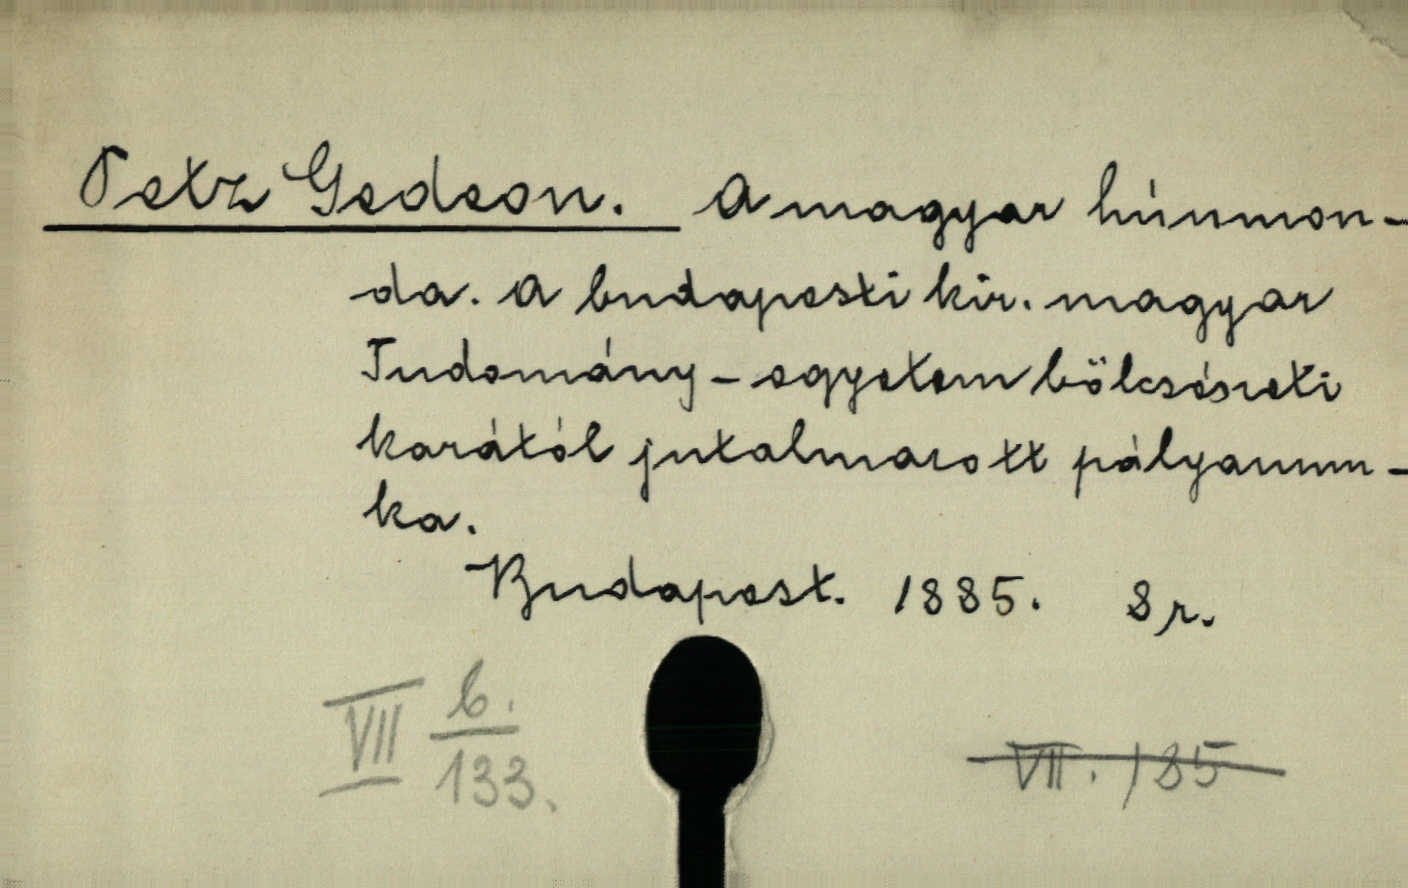 Petz Gedeon. A magyar húnmon-
da. A budapesti kir. magyar
Tudomány-egyetem bölcsészeti
karától jutalmazott pályamun-
ka.
Budapest. 1885. 8r.
VII b. / 133.
VII. 185